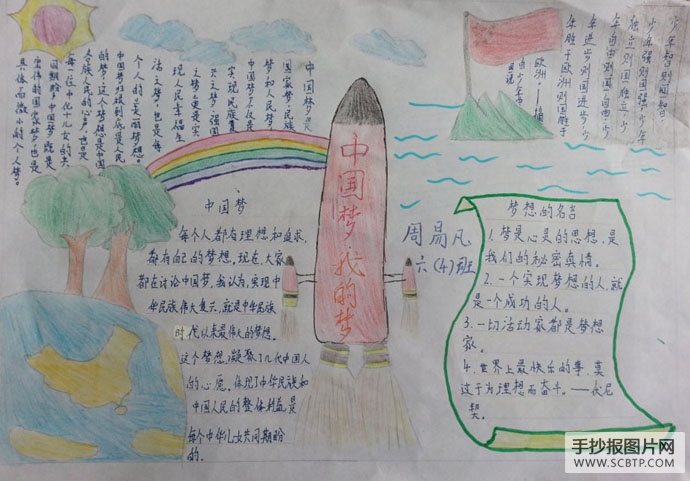 中国梦是
国家梦、民族
梦和人民梦
中国梦不仅是
实现民族复
兴之梦、强国
之梦,更是实
现人民幸福生
活之梦,也是每
个人的 美丽梦想。
中国梦归根到底是人民
的梦,这个梦想是中国
各族人民的心声,也是
每一位中华儿女的共
同期盼。中国梦既是
宏伟的国家梦,也是
具体而微小的个人梦。
少年智则国智,
少年强则国强,少年
独立则国独立,少
年自由则国自由,少
年进步则国进步,少
年胜于欧洲则国胜于
欧洲。
中国梦·我的梦
周易凡
六(4)班
中国梦
每个人都有理想和追求,
都有自己的梦想。现在,大家
都在讨论中国梦。我认为,实现中
华民族伟大复兴,就是中华民族
时代以来最伟大的梦想。
这个梦想,凝聚了几代中国人
的心愿。体现了中华民族和
中国人民的整体利益,是
每个中华儿女共同期盼
的。
梦想的名言
1.梦是心灵的思想,是
我们的秘密真情。
2.一个实现梦想的人,就
是一个成功的人。
3.一切活动家都是梦想
家。
4.世界上最快乐的事,莫
过于为理想而奋斗。——伏尼
契。
手抄报图片网
WWW.SCBTP.COM